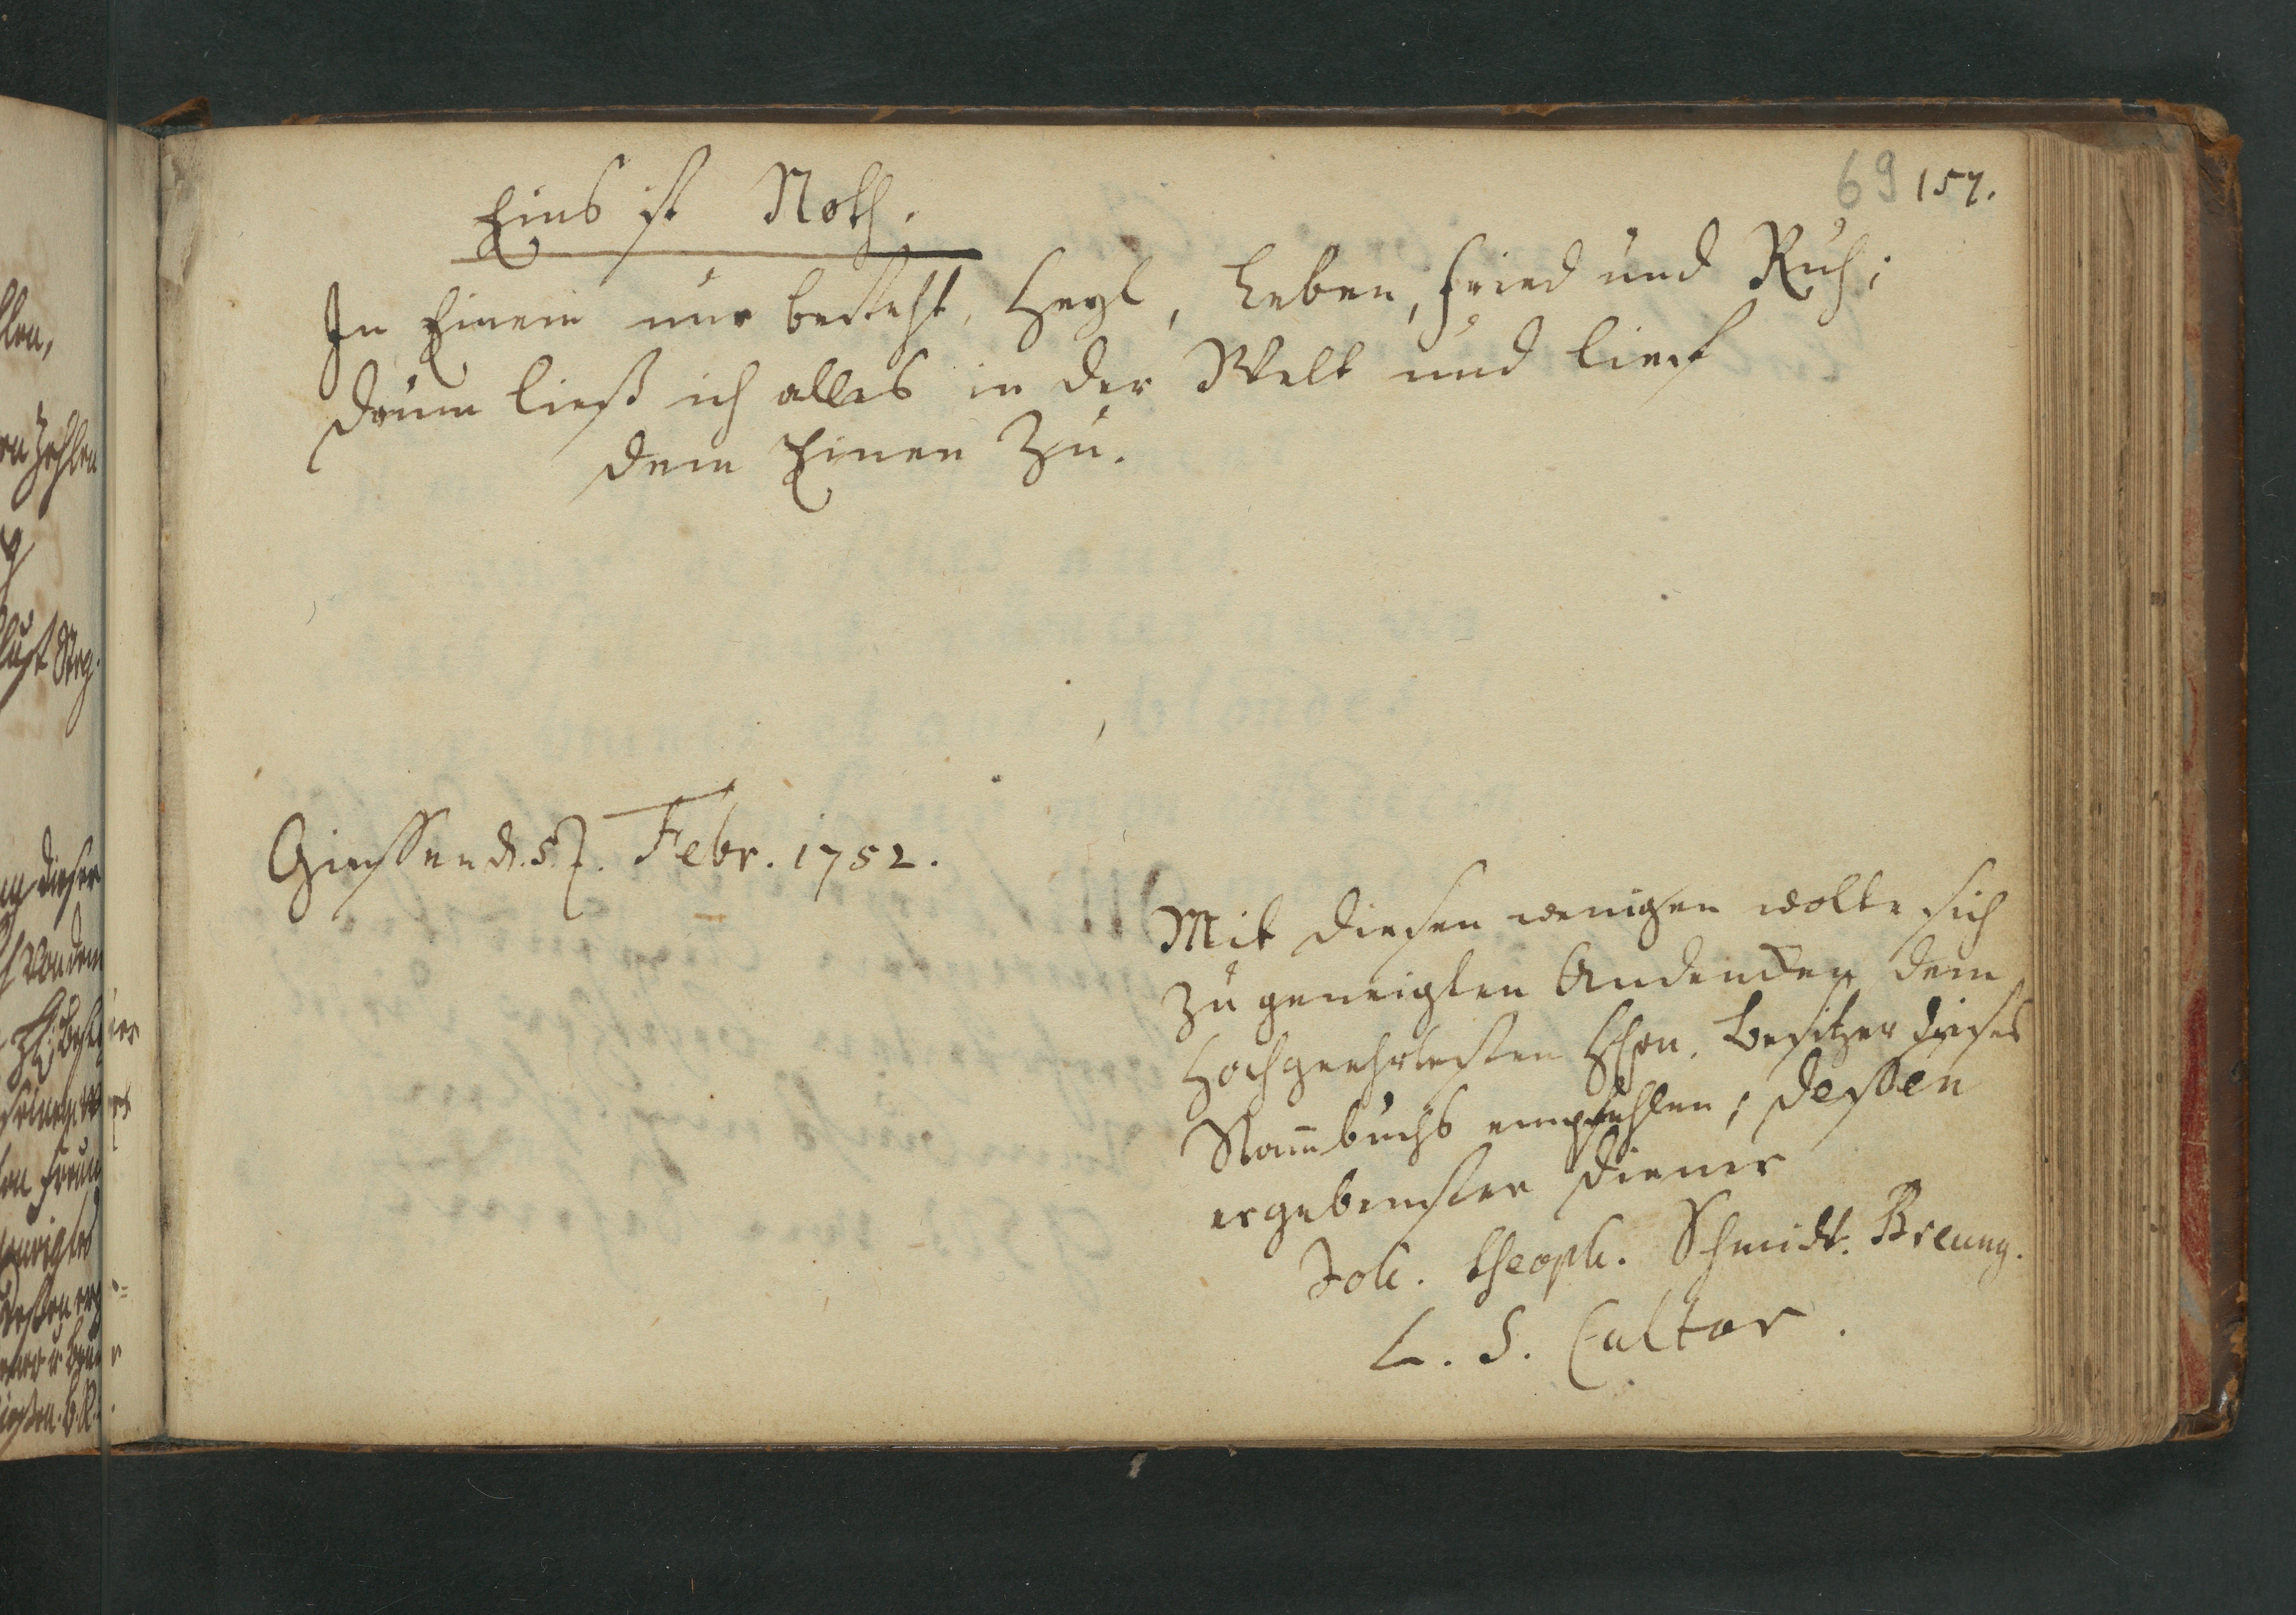 69 157.
Eins ist Noth.
In Einem nur besteht, Heyl, Leben, Fried und Ruh;
drum ließ ich alles in der Welt und lieff
dem Einen Zu.
Giessen d. 5. Febr. 1752.
Mit diesen wenigen wolte sich
zu geneigten Andencken dem
Hochgeehrtesten Hhrn. Besitzer dieses
Stam̅buchs empfehlen, dessen
ergebenster Diener
Joh. Theoph. Schmidt. Breung.
L. S. Cultor.